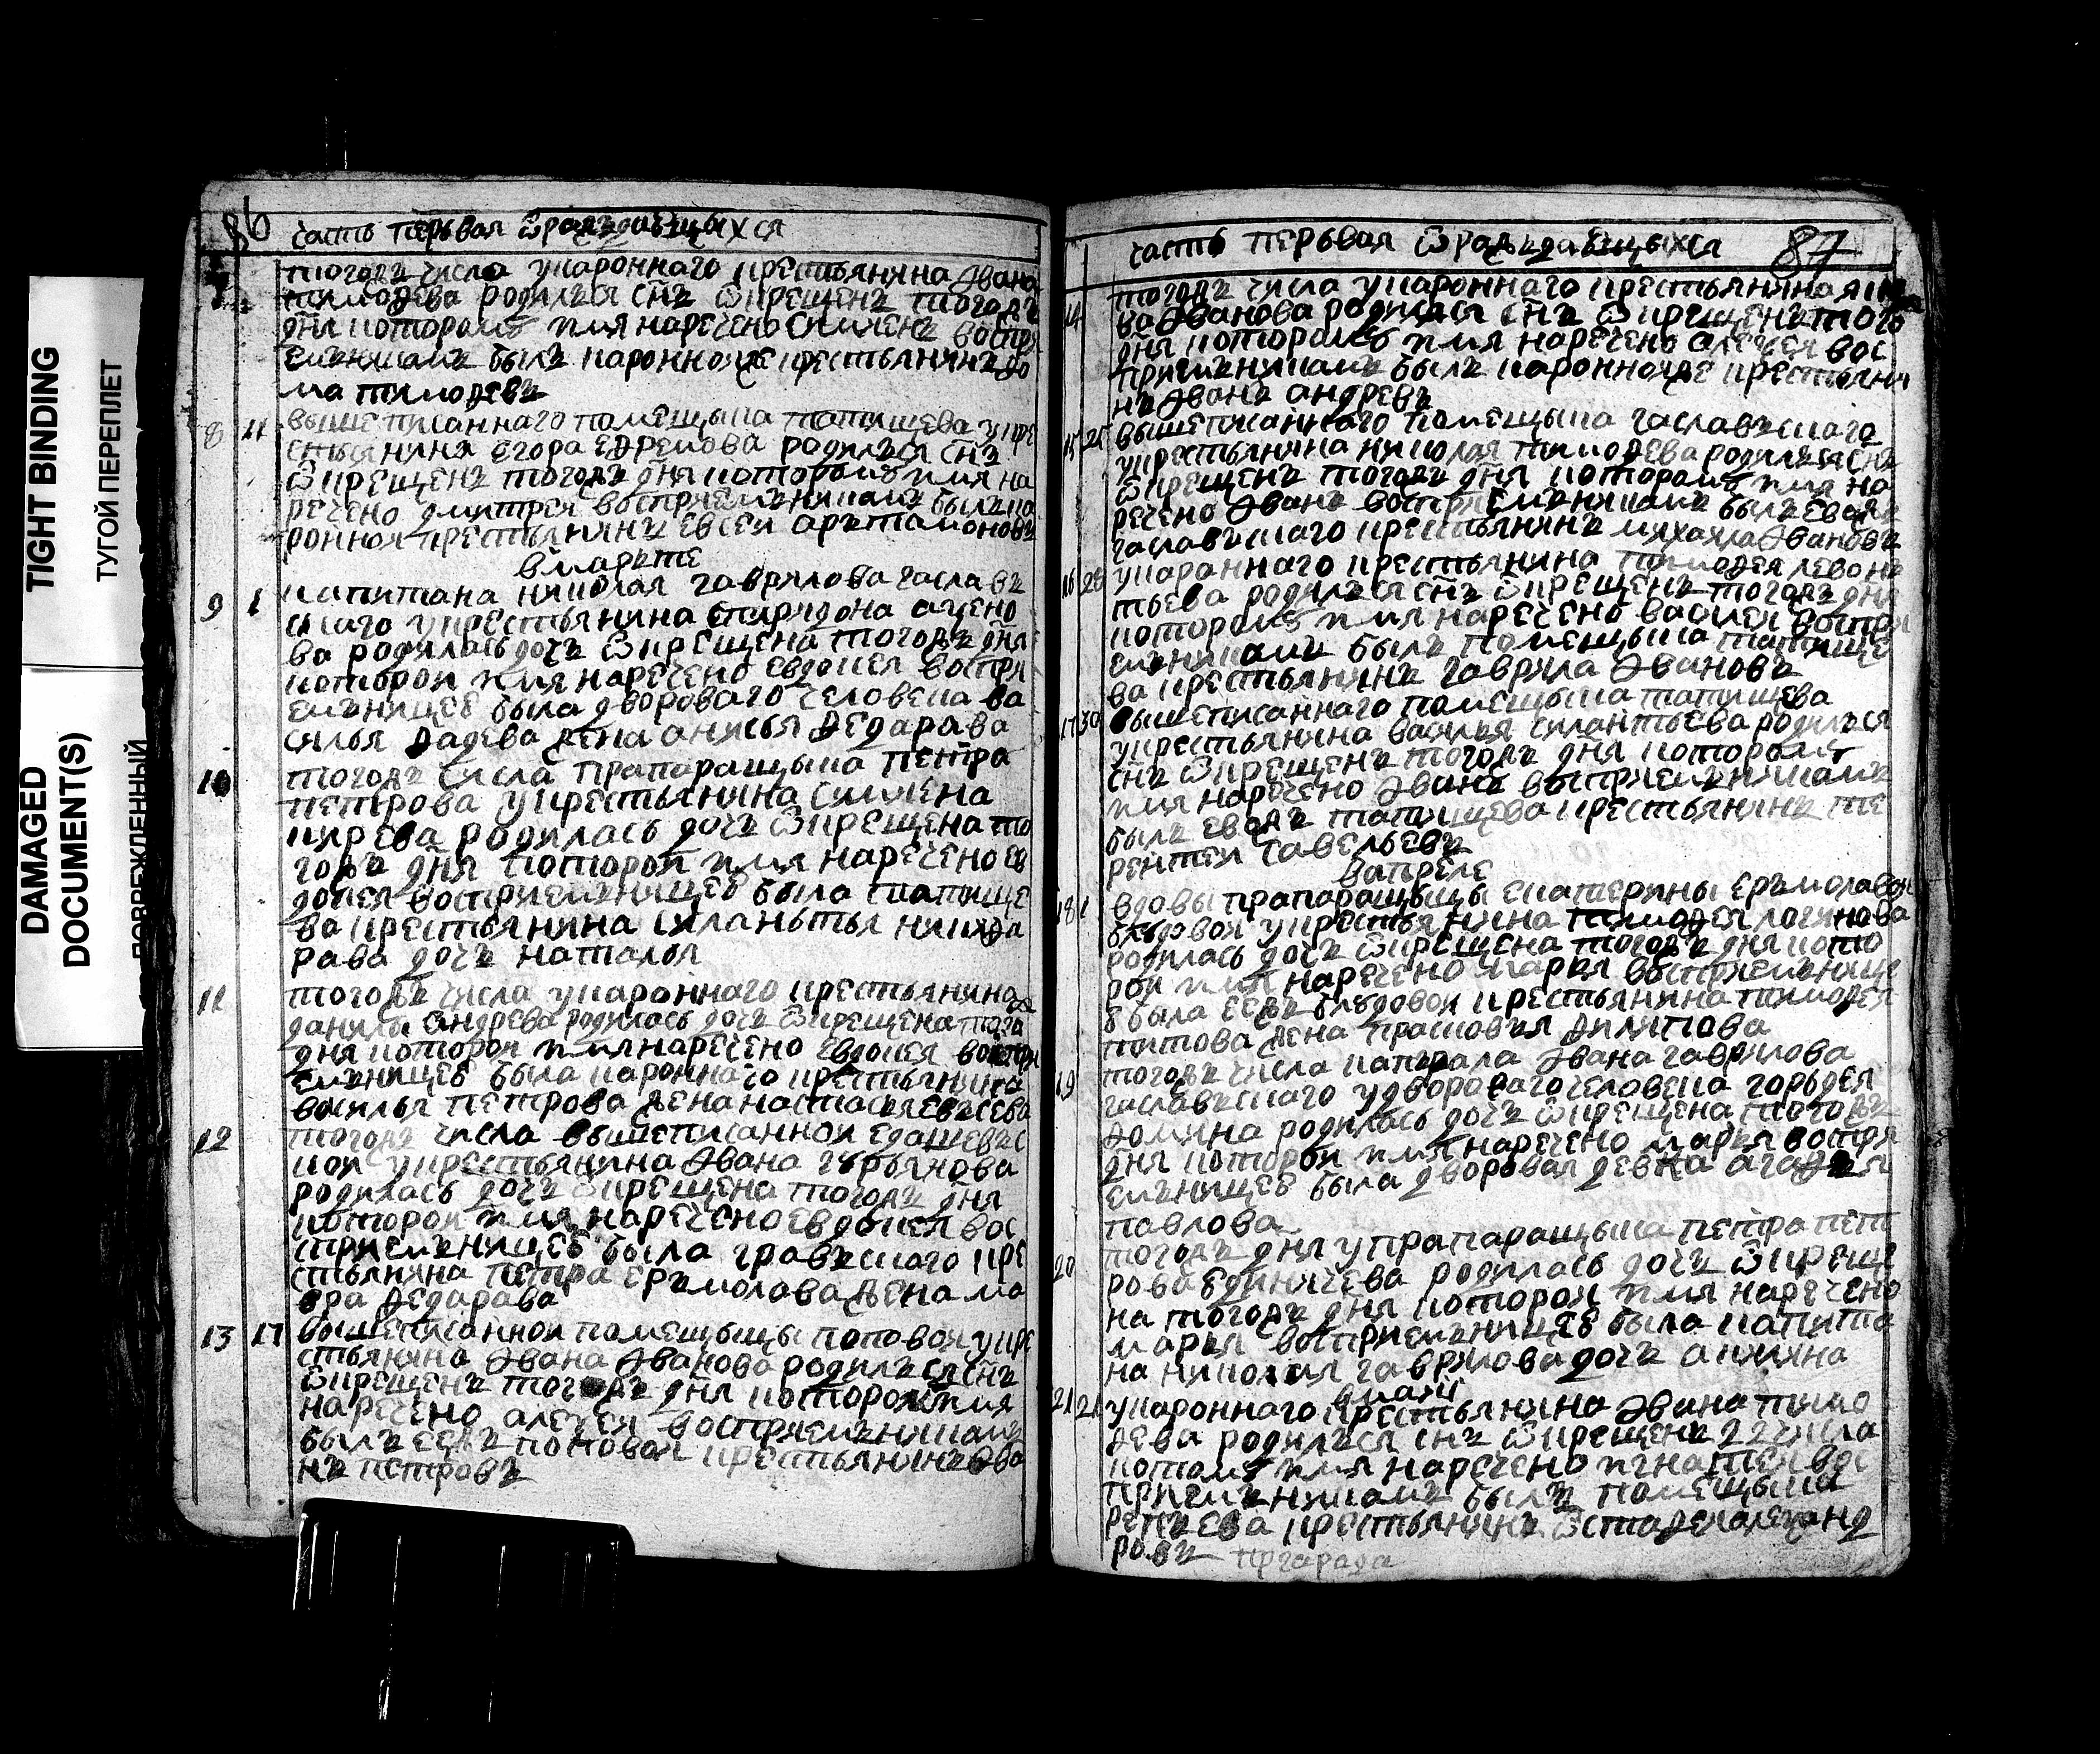 TIGHT BINDING
ТУГОЙ ПЕРЕПЛЕТ
DAMAGED
DOCUMENT(S)
ПОВРЕЖДЕННЫЙ
86
часть перьвая ѿ раждающыхся
7 тогожъ числа укаронного крестьянина Ивана
тимофева родился сн҃ъ ѿ крещенъ тогожъ
дн҃я которому имя наречено симиенъ воспри
емъникамъ былъ каронной же крестьянинъ фо
ма тимофевъ
8 11 вышеписанного помещыка татищева укре
стьянина егора ефремова родился сн҃ъ
ѿ крещенъ тогожъ дня которому имя на
речено дмитрея восприемъникамъ былъ ка
роннои крестьянинъ евсеи арътамоновъ
вмарьте
9 1 капитана николая гаврилова заславъ
скаго укрестьянина спиридона аксено
ва родилась дочъ ѿ крещена тогожъ дн҃я
которои имя наречено евдокея воспри
емъницеѣ была дворового человека ва
силья фадева жена анисья федарава
10 тогожъ числа прапаращыка петра
петрова укрестьянина симиена
кирева родилась дочъ ѿ крещена то
гожъ дня которои имя наречено ев
докея восприемъницеѣ была татище
ва крестьянина силаньтья никифа
рава дочъ наталья
11 тогожъ числа укаронного крестьянина
данилы андрева родилась дочъ ѿ крещена тогож
дня которои имя наречено евдокея воспри
емъницеѣ была каронного крестьянина
василья петрова жена настасья евъсева
12 тогожъ числа вышеписаннои едашевъс
кои укрестьянина Ивана гурьянова
родилась дочъ ѿ крещена тогожъ дня
которои имя наречено евдокея вос
приемъницеѣ была гравъскаго кре
стьянина петра еръмолова жена ма
вра федарава
13 17 вышеписаннои помещыцы поповои укре
стьянина Ивана Иванова родился сн҃ъ
ѿ крещенъ тогожъ дн҃я которому имя
наречено алексея восприемъникамъ
былъ еежъ поповои крестьянинъ Ива
нъ петровъ
часть перьвая ѿ раждающыхся 87
14 тогожъ числа укаронного крестьянина
ва Иванова родился сн҃ъ ѿ крещенъ того
дня которому имя наречено алексея вос
приемъникамъ былъ каронной же крестьяни
нъ Иванъ андревъ
15 25 вышеписанного помещыка заславъскаго
укрестьянина николая тимофева родился сн҃ъ
ѿ крещенъ тогожъ дня которому имя на
речено Иванъ восприемъникамъ былъ евожъ
заславъскаго крестьянинъ михаила Ивановъ
16 28 укаранного крестьянина тимофея левонъ
тьева родился сн҃ъ ѿ крещенъ тогожъ дня
которому имя наречено василея воспри
емъникамъ былъ помещыка татище
ва крестьянинъ гаврила Ивановъ
17 30 вышеписанного помещыка татищева
укрестьянина василья силантьева родился
сн҃ъ ѿ крещенъ тогожъ дня которому
имя наречено Иванъ восприемъникамъ
былъ евожъ татищева крестьянинъ те
рентеи савельевъ
вапреле
18 1 вдовы прапаращыцы екатерины еръмолавои
блудовои укрестьянина тимофея логинова
родилась дочъ ѿ крещена тогожъ дня кото
рои имя наречено марья восприемънице
ѣ была еежъ блудовои крестьянина тимофея
титова жена прасковья филипова
19 тогожъ числа капърала Ивана гаврилова
заславъскаго удворового человека горьдея
фомина родилась дочъ ѿ крещена тогожъ
дня которои имя наречено марья воспри
емъницеѣ была дворовая девка агафья
павлова
20 тогожъ дня упрапаращыка петра пет
рова единичева родилась дочъ ѿ креще
на тогожъ дня которои имя наречено
марья восприемъницеѣ была капита
на николая гаврилова дочъ акилина
вмаии
21 21 укаронного крестьянина Ивана тимо
фева родился сн҃ъ ѿ крещенъ 22 числа
котому имя наречено игнатеи вос
приемъникамъ былъ помещыка
крестьянинъ алеѯанд
ровъ